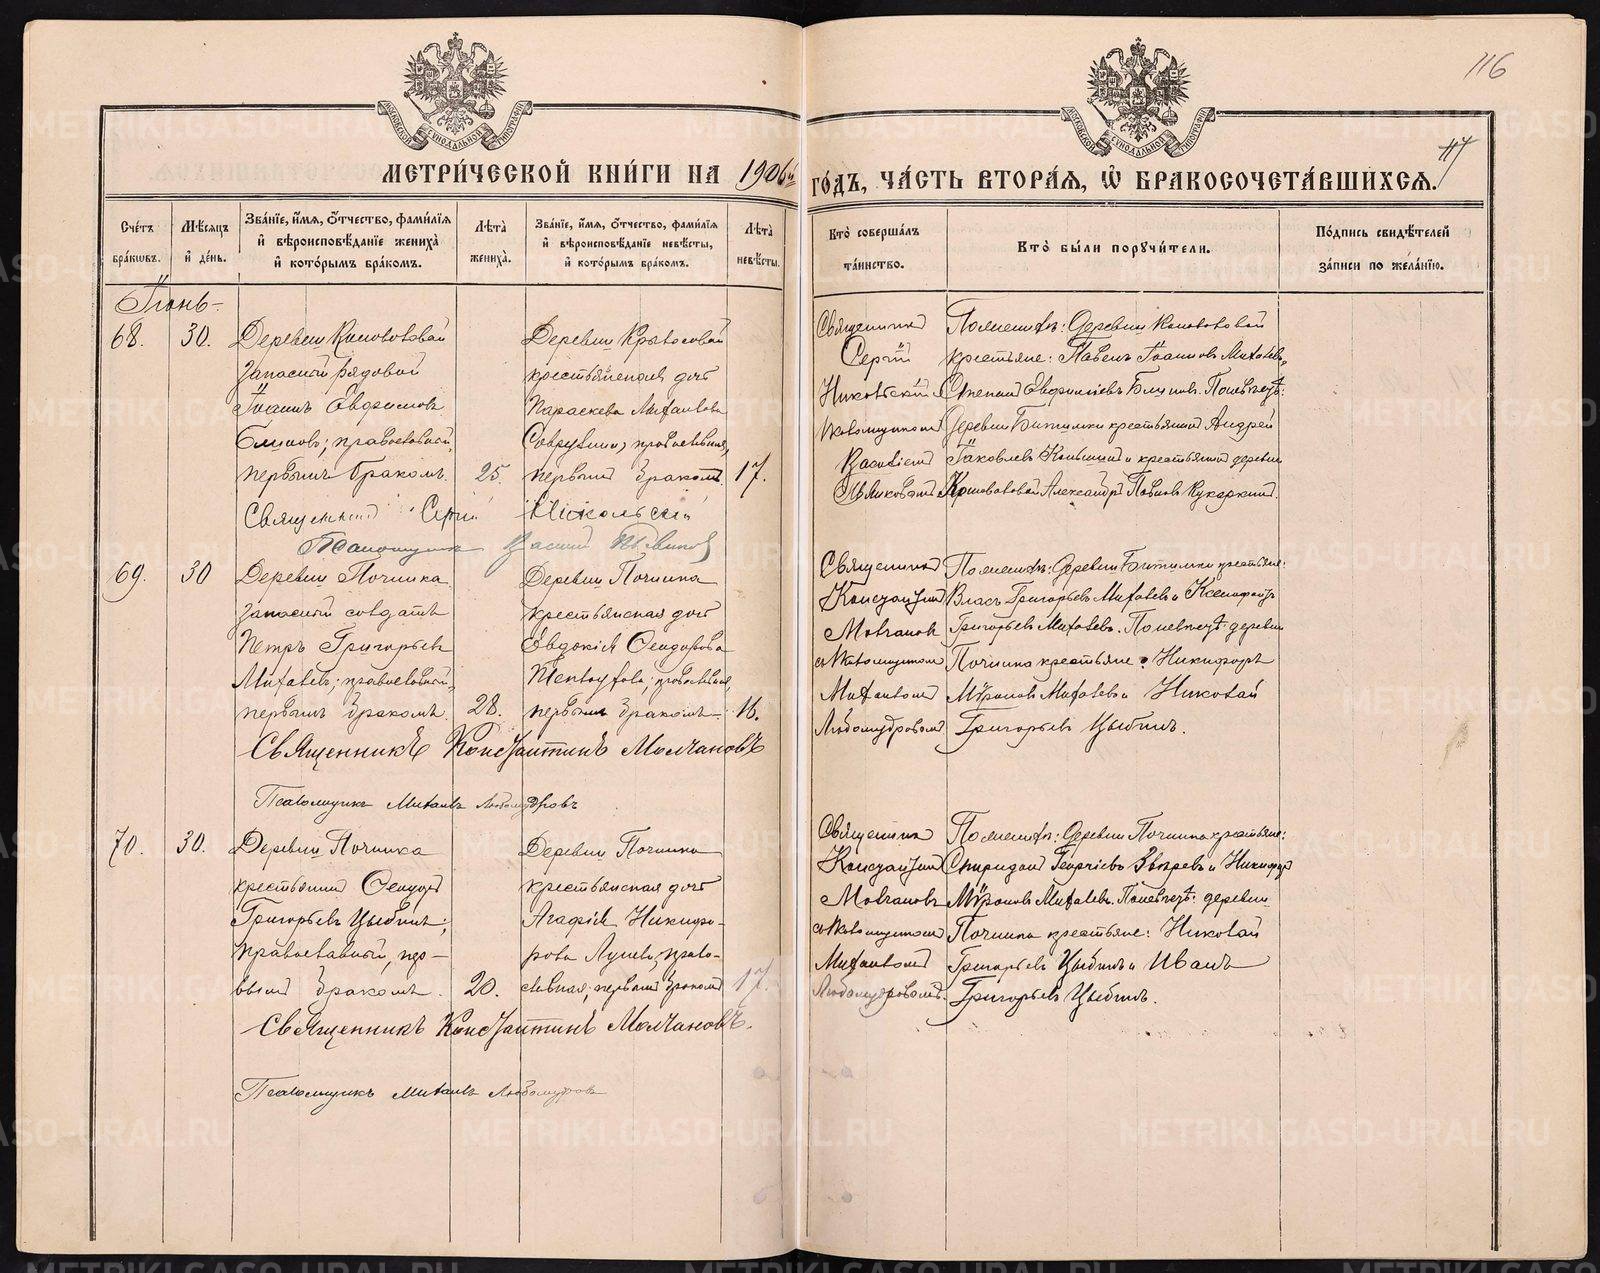 116
117
МЕТРИ́ЧЕСКОЙ КНИ́ГИ НА 1906й ГО́ДЪ, ЧА́СТЬ ВТОРА́Я, Ѽ БРАКОСОЧЕТА́ВШИХСЯ.
Сче́тъ бра́ковъ.
Мѣ́сяцъ и҆ де́нь.
Зва́нїе, и҆́мя, ѻ҆́тчество, фами́лїя и҆ вѣроисповѣ́данїе жениха̀ и҆ кото́рымъ бра́комъ.
Лѣ́та жениха̀.
Зва́нїе, и҆́мя, ѻ҆́тчество, фами́лїя и҆ вѣроисповѣ́данїе невѣ́сты, и҆ кото́рымъ бра́комъ.
Лѣ́та невѣ́сты.
Кто̀ соверша́лъ та́инство.
Кто̀ бы́ли порꙋчи́тели.
По́дпись свидѣ́телей за́писи по жела́нїю.
Іюнь
68.
30.
Деревни
Запасный рядовой
Іоаннъ Евфимовъ
Блиновъ, православный,
первымъ бракомъ.
25.
Деревни
крестьянская дочь
Параскева Михаилова
православная,
первымъ бракомъ.
17.
Священникъ
Сергій
Никольскій
съ псаломщикомъ
Василіемъ
Поженихѣ: Деревни
крестьяне: Павелъ Іоанновъ Михалевъ,
Степанъ Евфиміевъ Блиновъ. По невѣстѣ:
Деревни Битимки крестьянинъ Андрей
Іаковлевъ и крестьянинъ деревни
Александръ Павловъ Кукаркинъ.
Священникъ Сергій Никольскій
Псаломщикъ Василій
69.
30
Деревни Починка
запасный солдатъ
Петръ Григорьевъ
Михалевъ, православный,
первымъ бракомъ.
28.
Деревни Починка
крестьянская дочь
Евдокія Ѳеодорова
православная,
первымъ бракомъ.
16.
Священникъ
Константинъ
Молчановъ
съ псаломщикомъ
Михаиломъ
Любомудровымъ
Поженихѣ: Деревни Битимки крестьяне:
Власъ Григорьевъ Михалевъ и Ксенофонтъ
Григорьевъ Михалевъ. По невѣстѣ: деревни
Починка крестьяне: Никифоръ
Мѵроновъ Михалевъ и Николай
Григорьевъ Цыбинъ.
Священникъ Константинъ Молчановъ
Псаломщикъ Михаилъ Любомудровъ
70.
30.
Деревни Починка
крестьянинъ Ѳеодоръ
Григорьевъ Цыбинъ,
православный, пер-
вымъ бракомъ.
20.
Деревни Починка
крестьянская дочь
Агафія Никифо-
рова право-
славная, первымъ бракомъ
17.
Священникъ
Константинъ
Молчановъ
съ псаломщикомъ
Михаиломъ
Любомудровымъ.
Поженихѣ: Деревни Починка крестьяне:
Спиридонъ Георгіевъ Звѣревъ и Никифоръ
Мѵроновъ Михалевъ. По невѣстѣ: деревни
Починка крестьяне: Николай
Григорьевъ Цыбинъ и Иванъ
Григорьевъ Цыбинъ.
Священникъ Константинъ Молчановъ.
Псаломщикъ Михаилъ Любомудровъ
METRIKI.GASO-URAL.RU